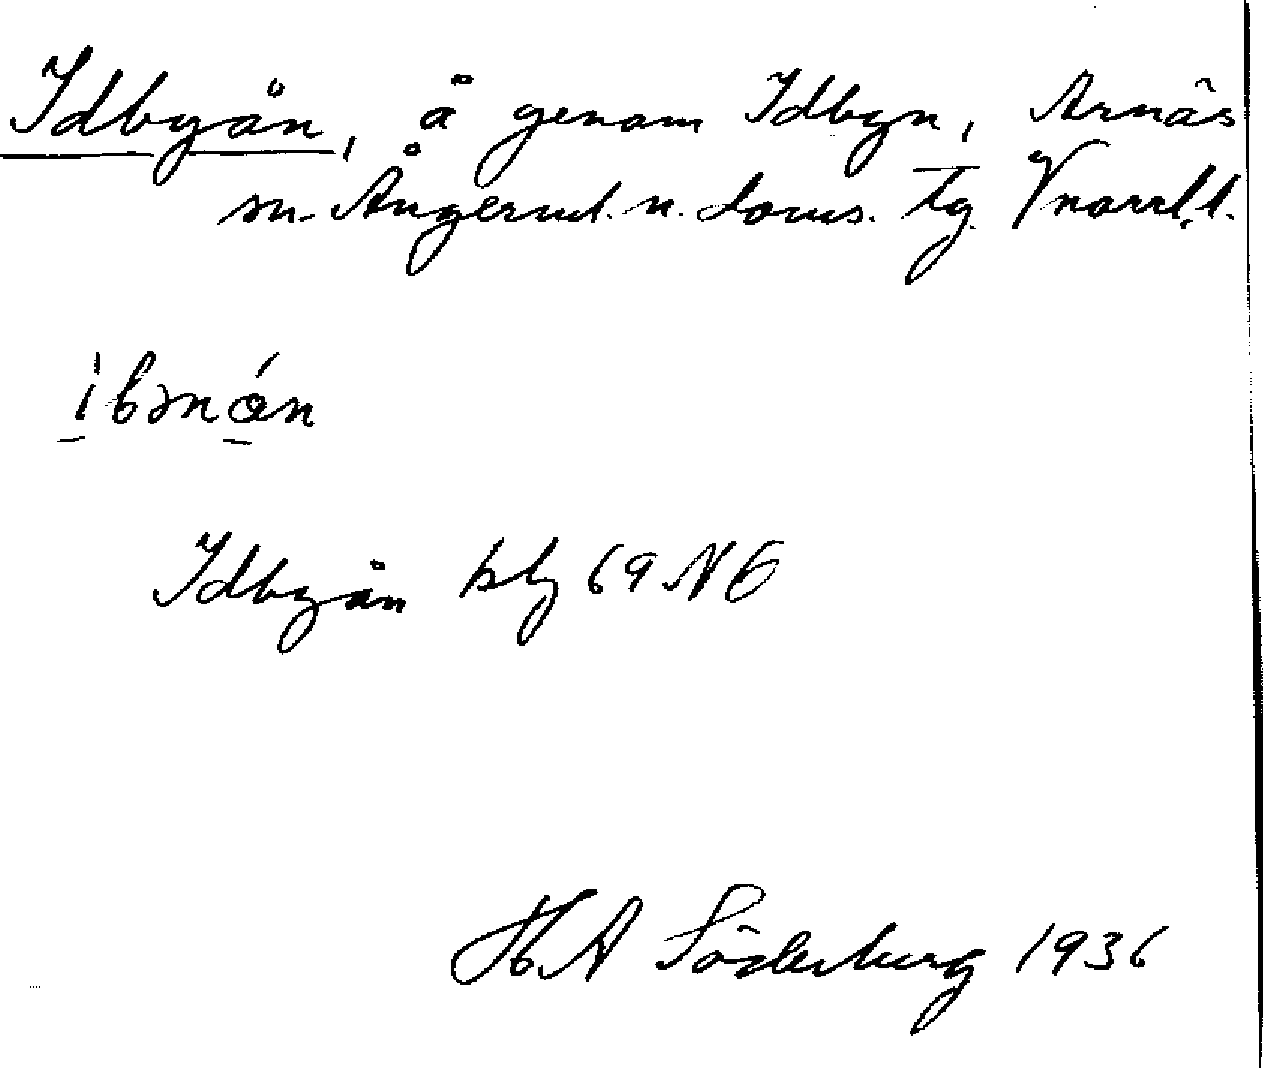 Idbyån, å genom Idbyn, Arnäs
sn. Ångerml. n. doms. tg Vnorrl. l.
ibənån
Idbyån kbl 69 NE
H A Söderberg 1936